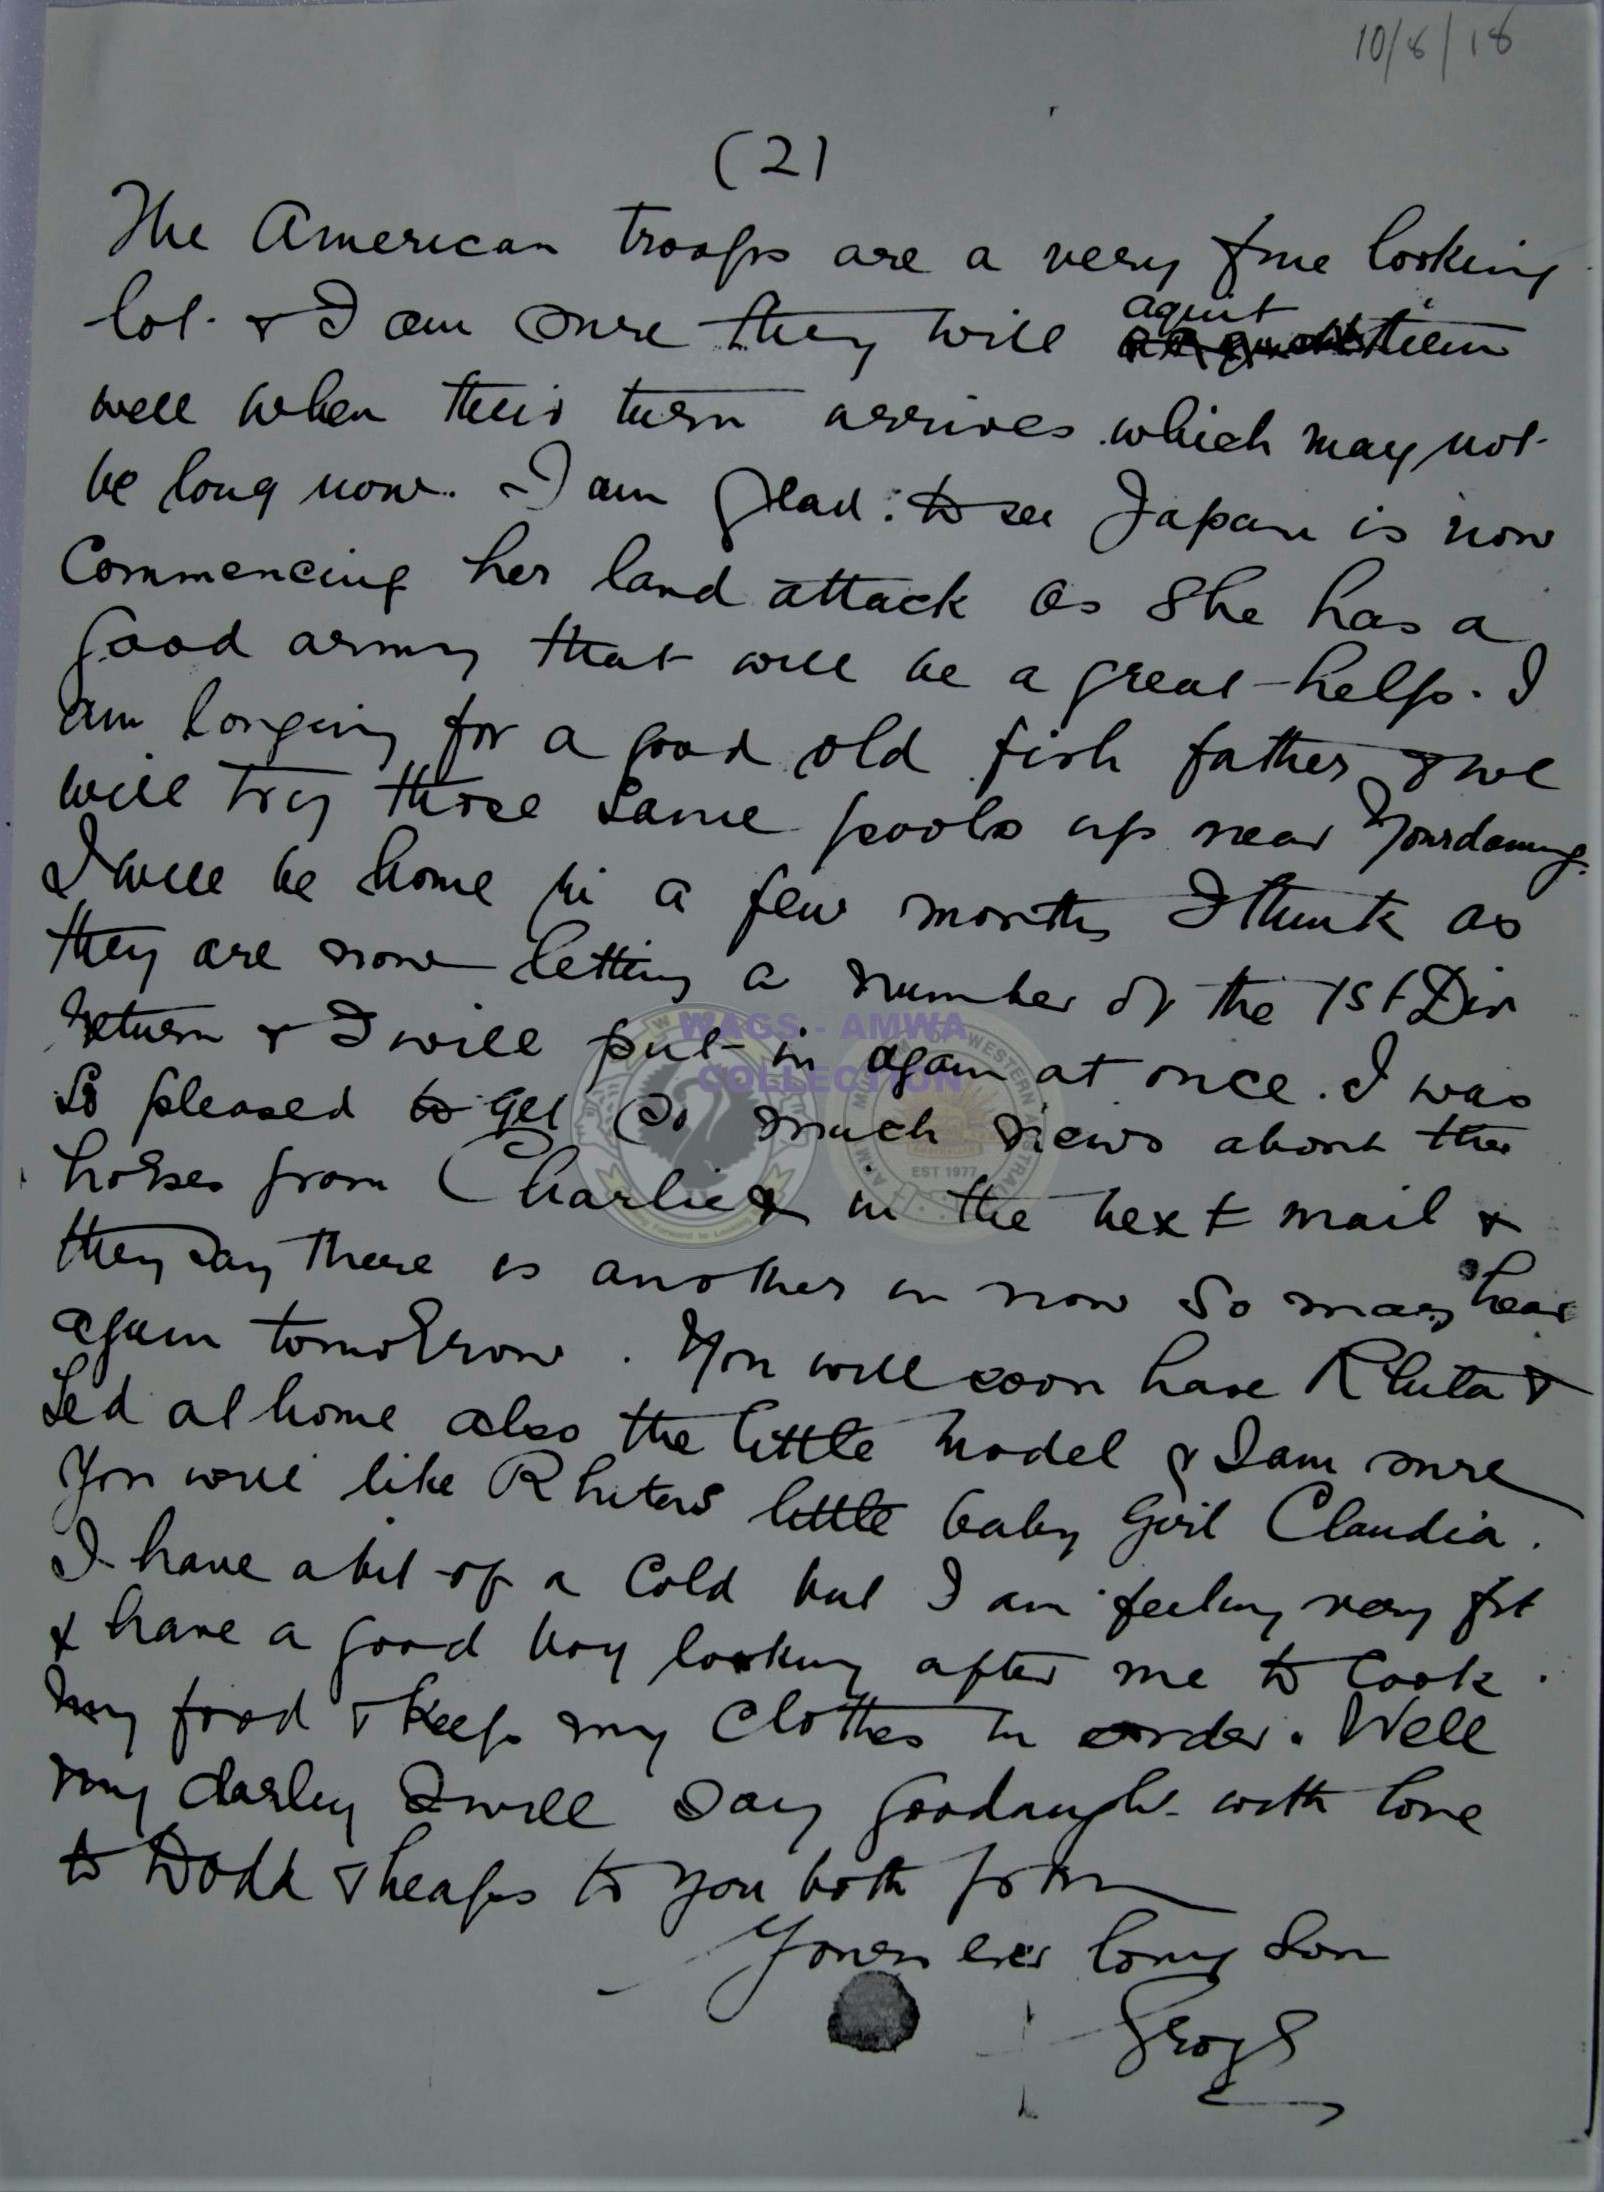 10/8/18
(2)
The American troops are a very fine looking
lot. & I am sure they will aquit them
well when their turn arrives which may not
be long now. I am glad to see Japan is now
Commencing her land attack as She has a
good army that will be a great help. I
am longing for a good old fish father & we
will try those same pools up near Yourdaming.
I will be home in a few months I think as
they are now letting a number of the 1st Div
return & I will put in again at once. I was
So pleased to get so much news about the
horses from Charlie & in the next mail &
they say there is another in now So may hear
again tomorrow. You will soon have Rhita &
Ted at home also the little model & I am sure
You will like Rhitas little baby Girl Claudia.
I have a bit of a Cold but I am feeling very fit
& have a good boy looking after me to Cook
my food & keep my Clothes in order. Well
my darling I will Say goodnight with love
to Dodd & heaps to you both from
Yours ever loving Son
WAGS - AMWA
COLLECTION
EST 1977